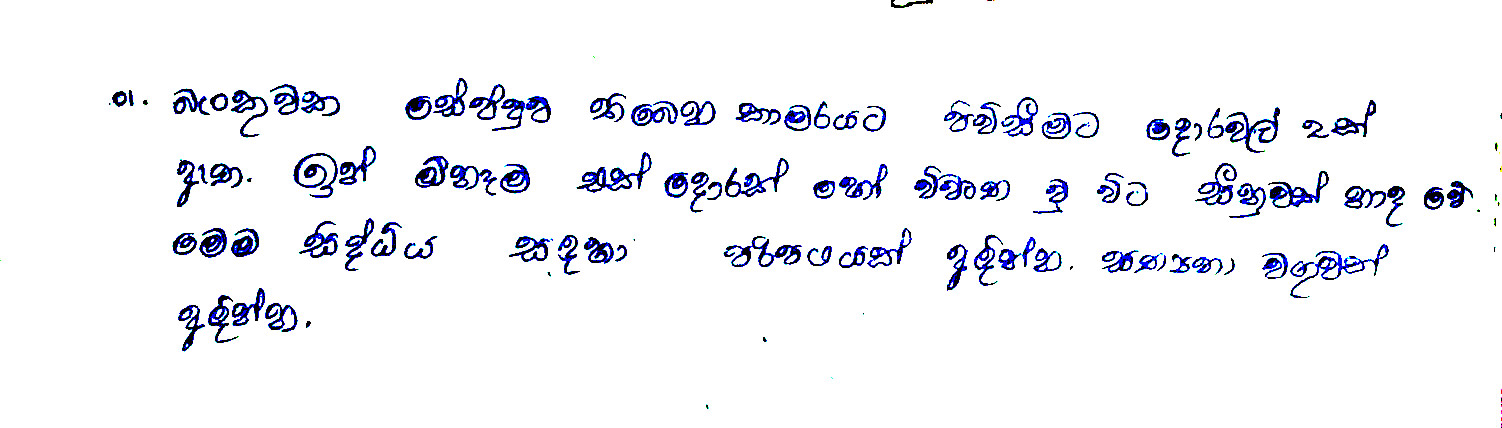 01. බැංකුවක සේප්පුව තිබෙන කාමරයට පිවිසීමට දොරවල් 2ක්
ඇත. ඉන් ඕනෑම එක් දොරක් හෝ විවෘත වූ විට සීනුවක් නාද වේ.
මෙම සිද්ධිය සඳහා පරිපථයක් අඳින්න. සත්‍යතා වගුවක්
අඳින්න.